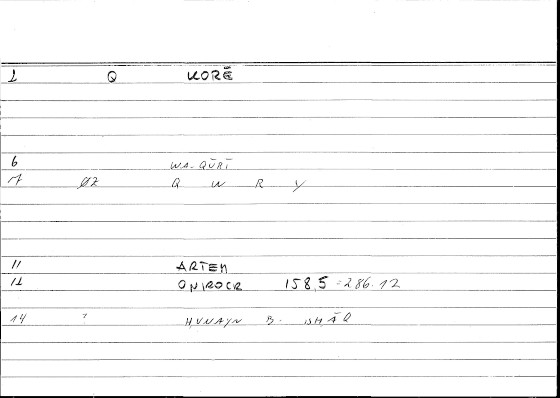 1 Q KORĒ
6 WA-QŪRĪ
7 ØZ Q W R Y
11 ARTEM
12 ONIROCR 158,5 = 286.12
14 ? ḤUNAYN B. ISḤĀQ